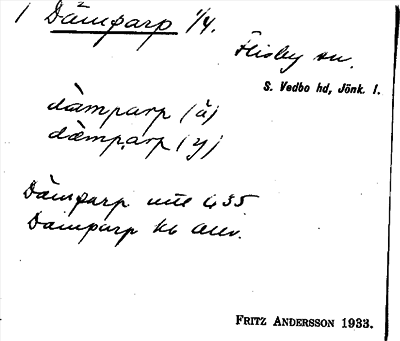 1 Dämparp 1/4.
Flisby sn.
S. Vedbo hd, Jönk. l.
dämparp (ä)
dæmparp (y)
Dämparp mtl 435
Damparp kb Anv.
FRITZ ANDERSSON 1933.